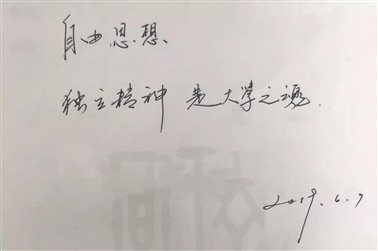 自由思想
独立精神 是大学之魂.
2019.6.7